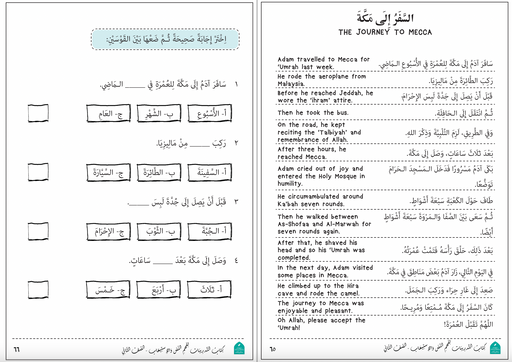 السَّفَرُ إِلَى مَكَّةَ
THE JOURNEY TO MECCA
Adam travelled to Mecca for
'Umrah last week.
سَافَرَ آدَمُ إِلَى مَكَّةَ لِلْعُمْرَةِ فِي الْأُسْبُوعِ الْمَاضِي.
He rode the aeroplane from
Malaysia.
رَكِبَ الطَّائِرَةَ مِنْ مَالِيزِيَا.
Before he reached Jeddah, he
wore the 'Ihram' attire.
قَبْلَ أَنْ يَصِلَ إِلَى جُدَّةَ لَبِسَ الْإِحْرَامَ.
Then he took the bus.
ثُمَّ انْتَقَلَ إِلَى الْحَافِلَةِ.
On the road, he kept
reciting the 'Talbiyah' and
remembrance of Allah.
وَفِي الطَّرِيقِ، لَزِمَ التَّلْبِيَةَ وَذَكَرَ اللهَ.
After three hours, he
reached Mecca.
بَعْدَ ثَلَاثِ سَاعَاتٍ، وَصَلَ إِلَى مَكَّةَ.
Adam cried out of joy and
entered the Holy Mosque in
humility.
بَكَى آدَمُ مَسْرُورًا فَدَخَلَ الْمَسْجِدَ الْحَرَامَ
He circumambulated around
Ka'bah seven rounds.
طَافَ حَوْلَ الْكَعْبَةِ سَبْعَةَ أَشْوَاطٍ.
Then he walked between
As-Shofwa and Al-Marwah for
seven rounds again.
ثُمَّ سَعَى بَيْنَ الصَّفَا وَالْمَرْوَةِ سَبْعَةَ أَشْوَاطٍ
أَيْضًا.
After that, he shaved his
head and so his 'Umrah was
completed.
بَعْدَ ذَلِكَ، حَلَقَ رَأْسَهُ فَتَمَّتْ عُمْرَتُهُ.
In the next day, Adam visited
some places in Mecca.
فِي الْيَوْمِ التَّالِي، زَارَ آدَمُ بَعْضَ مَنَاطِقَ فِي مَكَّةَ.
He climbed up to the Hira
cave and rode the camel.
صَعِدَ إِلَى غَارِ حِرَاءَ وَرَكِبَ الْجَمَلَ.
The journey to Mecca was
enjoyable and pleasant.
كَانَ السَّفَرُ إِلَى مَكَّةَ مُمْتِعًا وَمُرِيحًا.
Oh Allah, please accept the
'Umrah!
اللَّهُمَّ تَقَبَّلِ الْعُمْرَةَ!
٦٥
اِخْتَرْ إِجَابَةً صَحِيحَةً ثُمَّ ضَعْهَا بَيْنَ الْقَوْسَيْنِ:
١ سَافَرَ آدَمُ إِلَى مَكَّةَ لِلْعُمْرَةِ فِي _____ الْمَاضِي.
أ- الْأُسْبُوعِ ب- الشَّهْرِ ج- الْعَامِ
٢ رَكِبَ _____ مِنْ مَالِيزِيَا.
أ- السَّفِينَةَ ب- الطَّائِرَةَ ج- السَّيَّارَةَ
٣ قَبْلَ أَنْ يَصِلَ إِلَى جُدَّةَ لَبِسَ _____.
أ- الْجُبَّةَ ب- الثَّوْبَ ج- الْإِحْرَامَ
٤ وَصَلَ إِلَى مَكَّةَ بَعْدَ _____ سَاعَاتٍ.
أ- ثَلَاثِ ب- أَرْبَعِ ج- خَمْسِ
٦٦